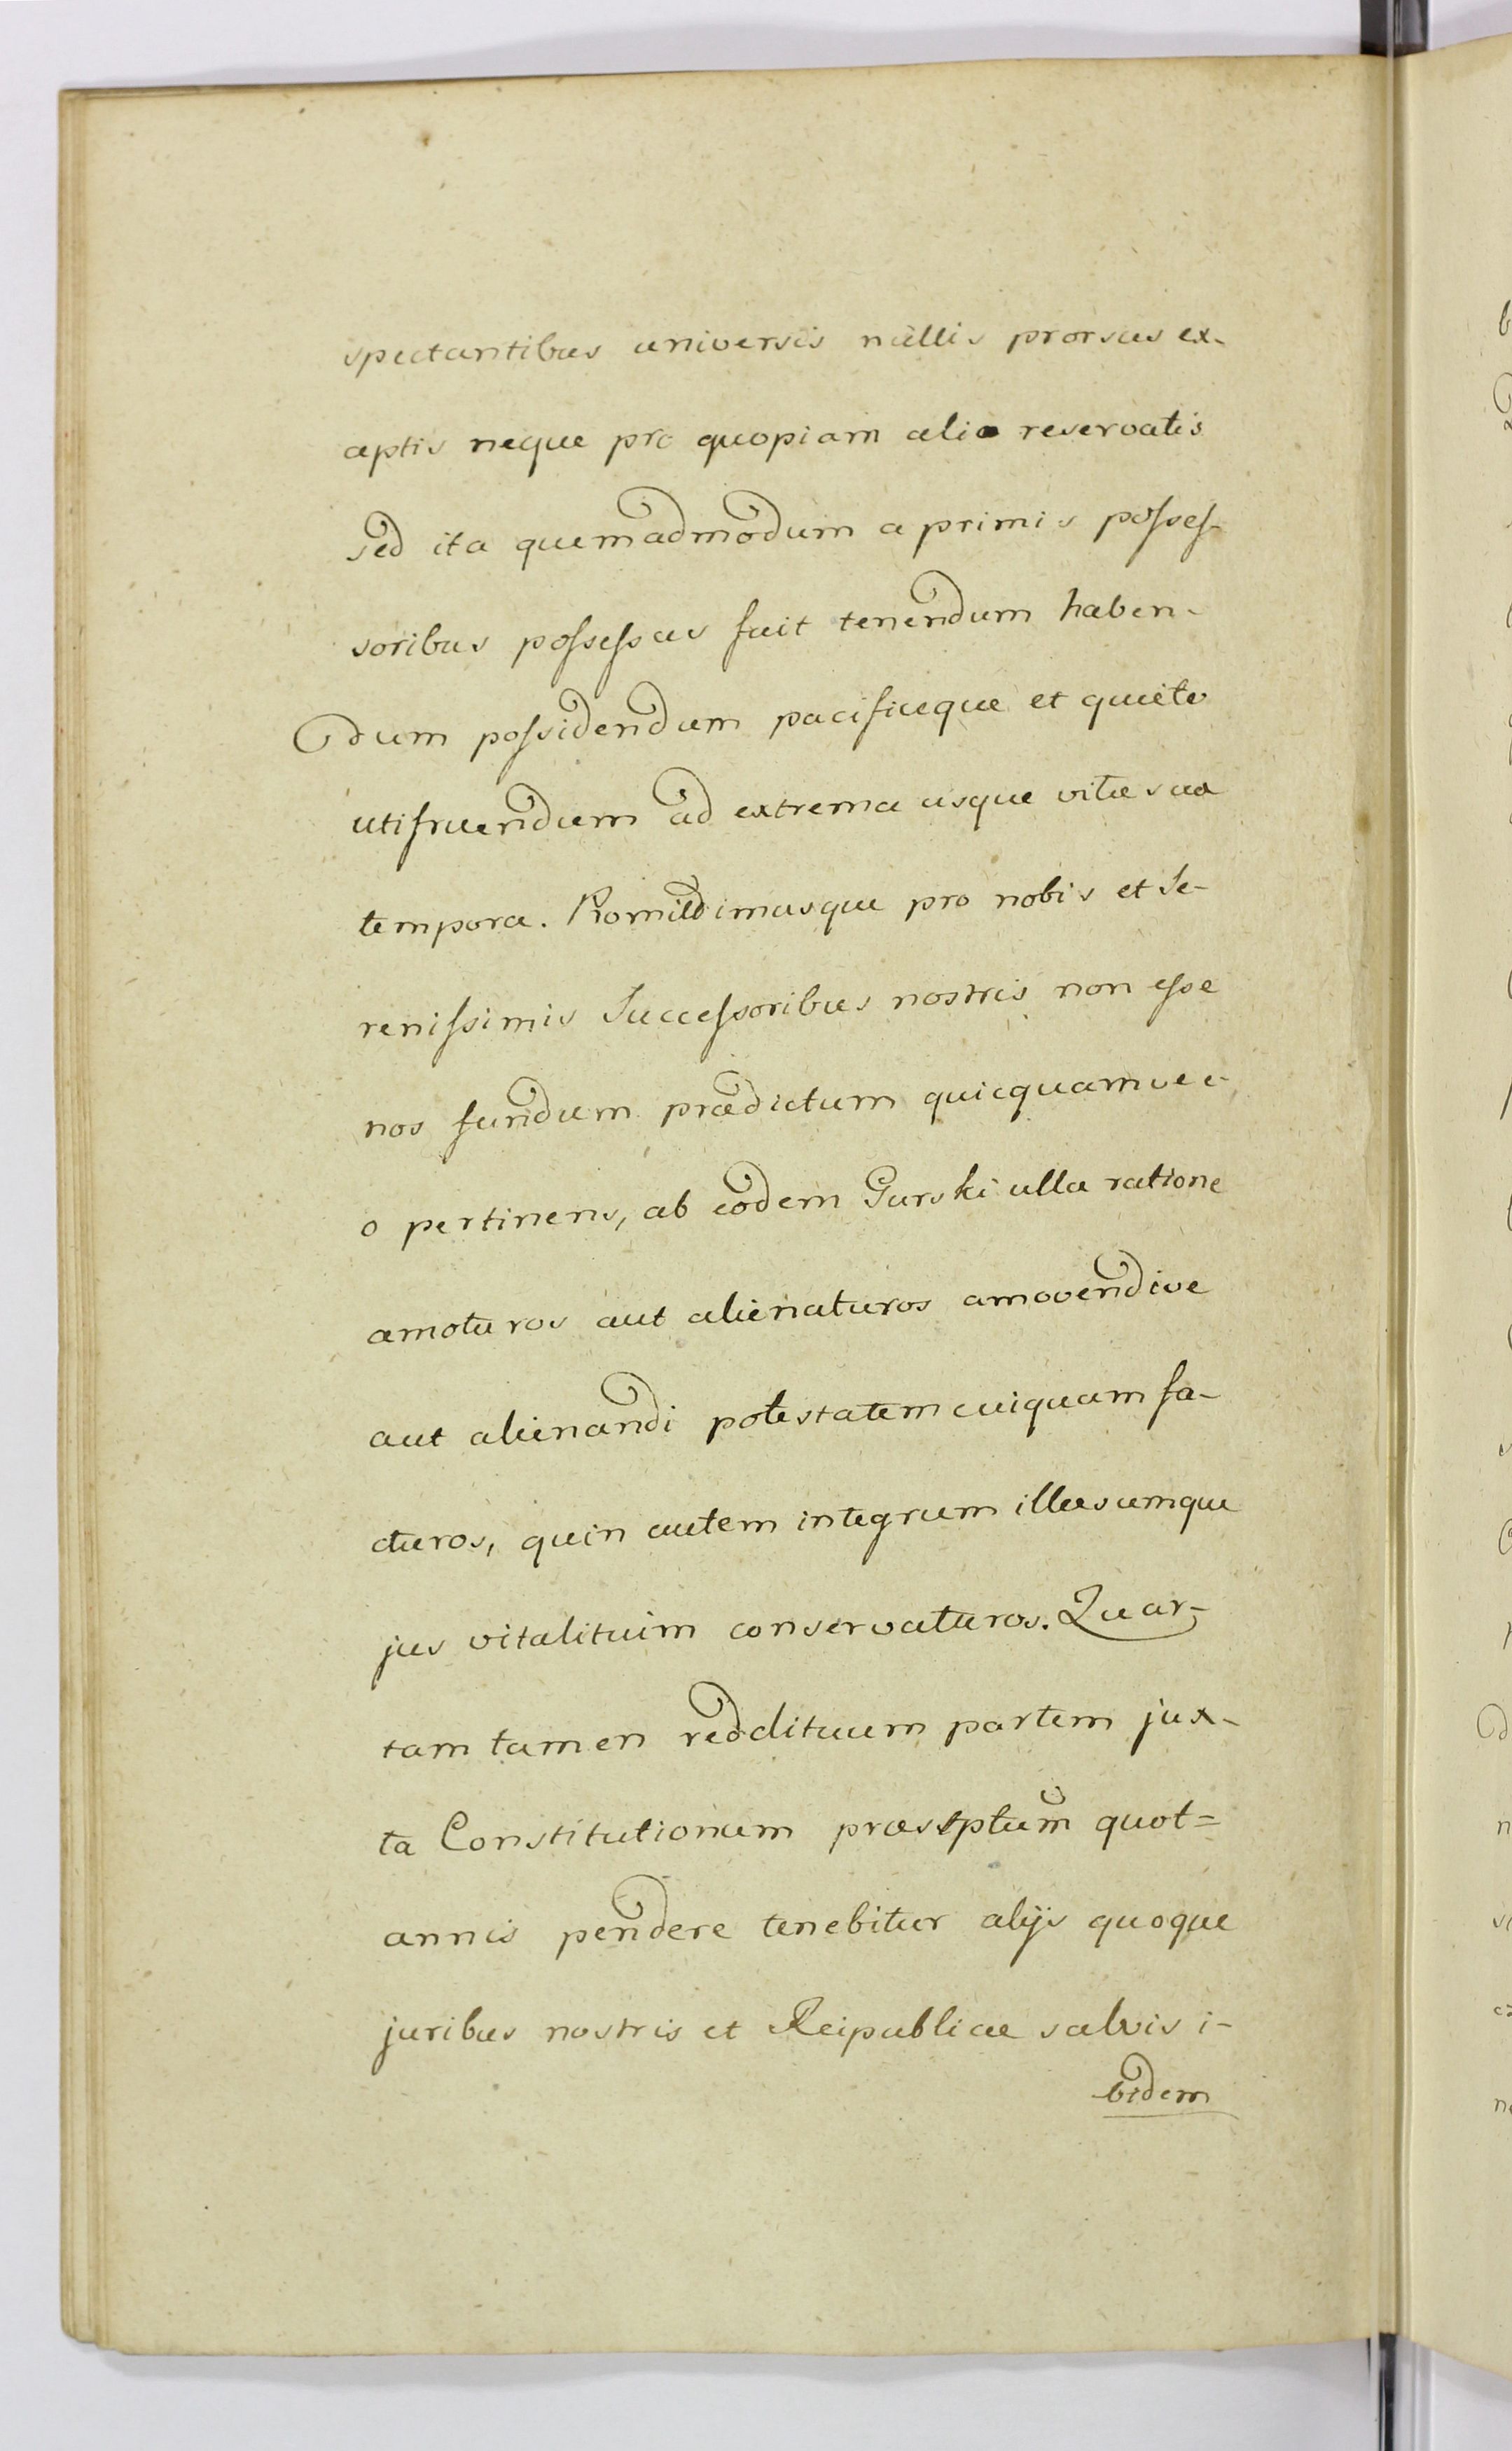 spectantibus universis nullis prorsus ex-
ceptis neque pro quopiam alio reservatis
sed ita quemadmodum a primis posses-
soribus possessus fuit tenendum haben-
dum possidendum pacificeque et quiete
utifruendum ad extrema usque vitæ suæ
tempora. Promittimusque pro nobis et Se-
renissimis Successoribus nostris non esse
nos fundum prædictum quicquamve e-
o pertinens, ab eodem Gurski ulla ratione
amoturos aut alienaturos amovendive
aut alienandi potestatem cuiquam fa-
cturos, quin autem integrum illæsumque
jus vitalituim conservaturos. Quar-
tam tamen reddituum partem jux-
ta Constitutionem quot=
annis pendere tenebitur alijs quoque
juribus nostris et Reipublicæ salvis i-
bidem